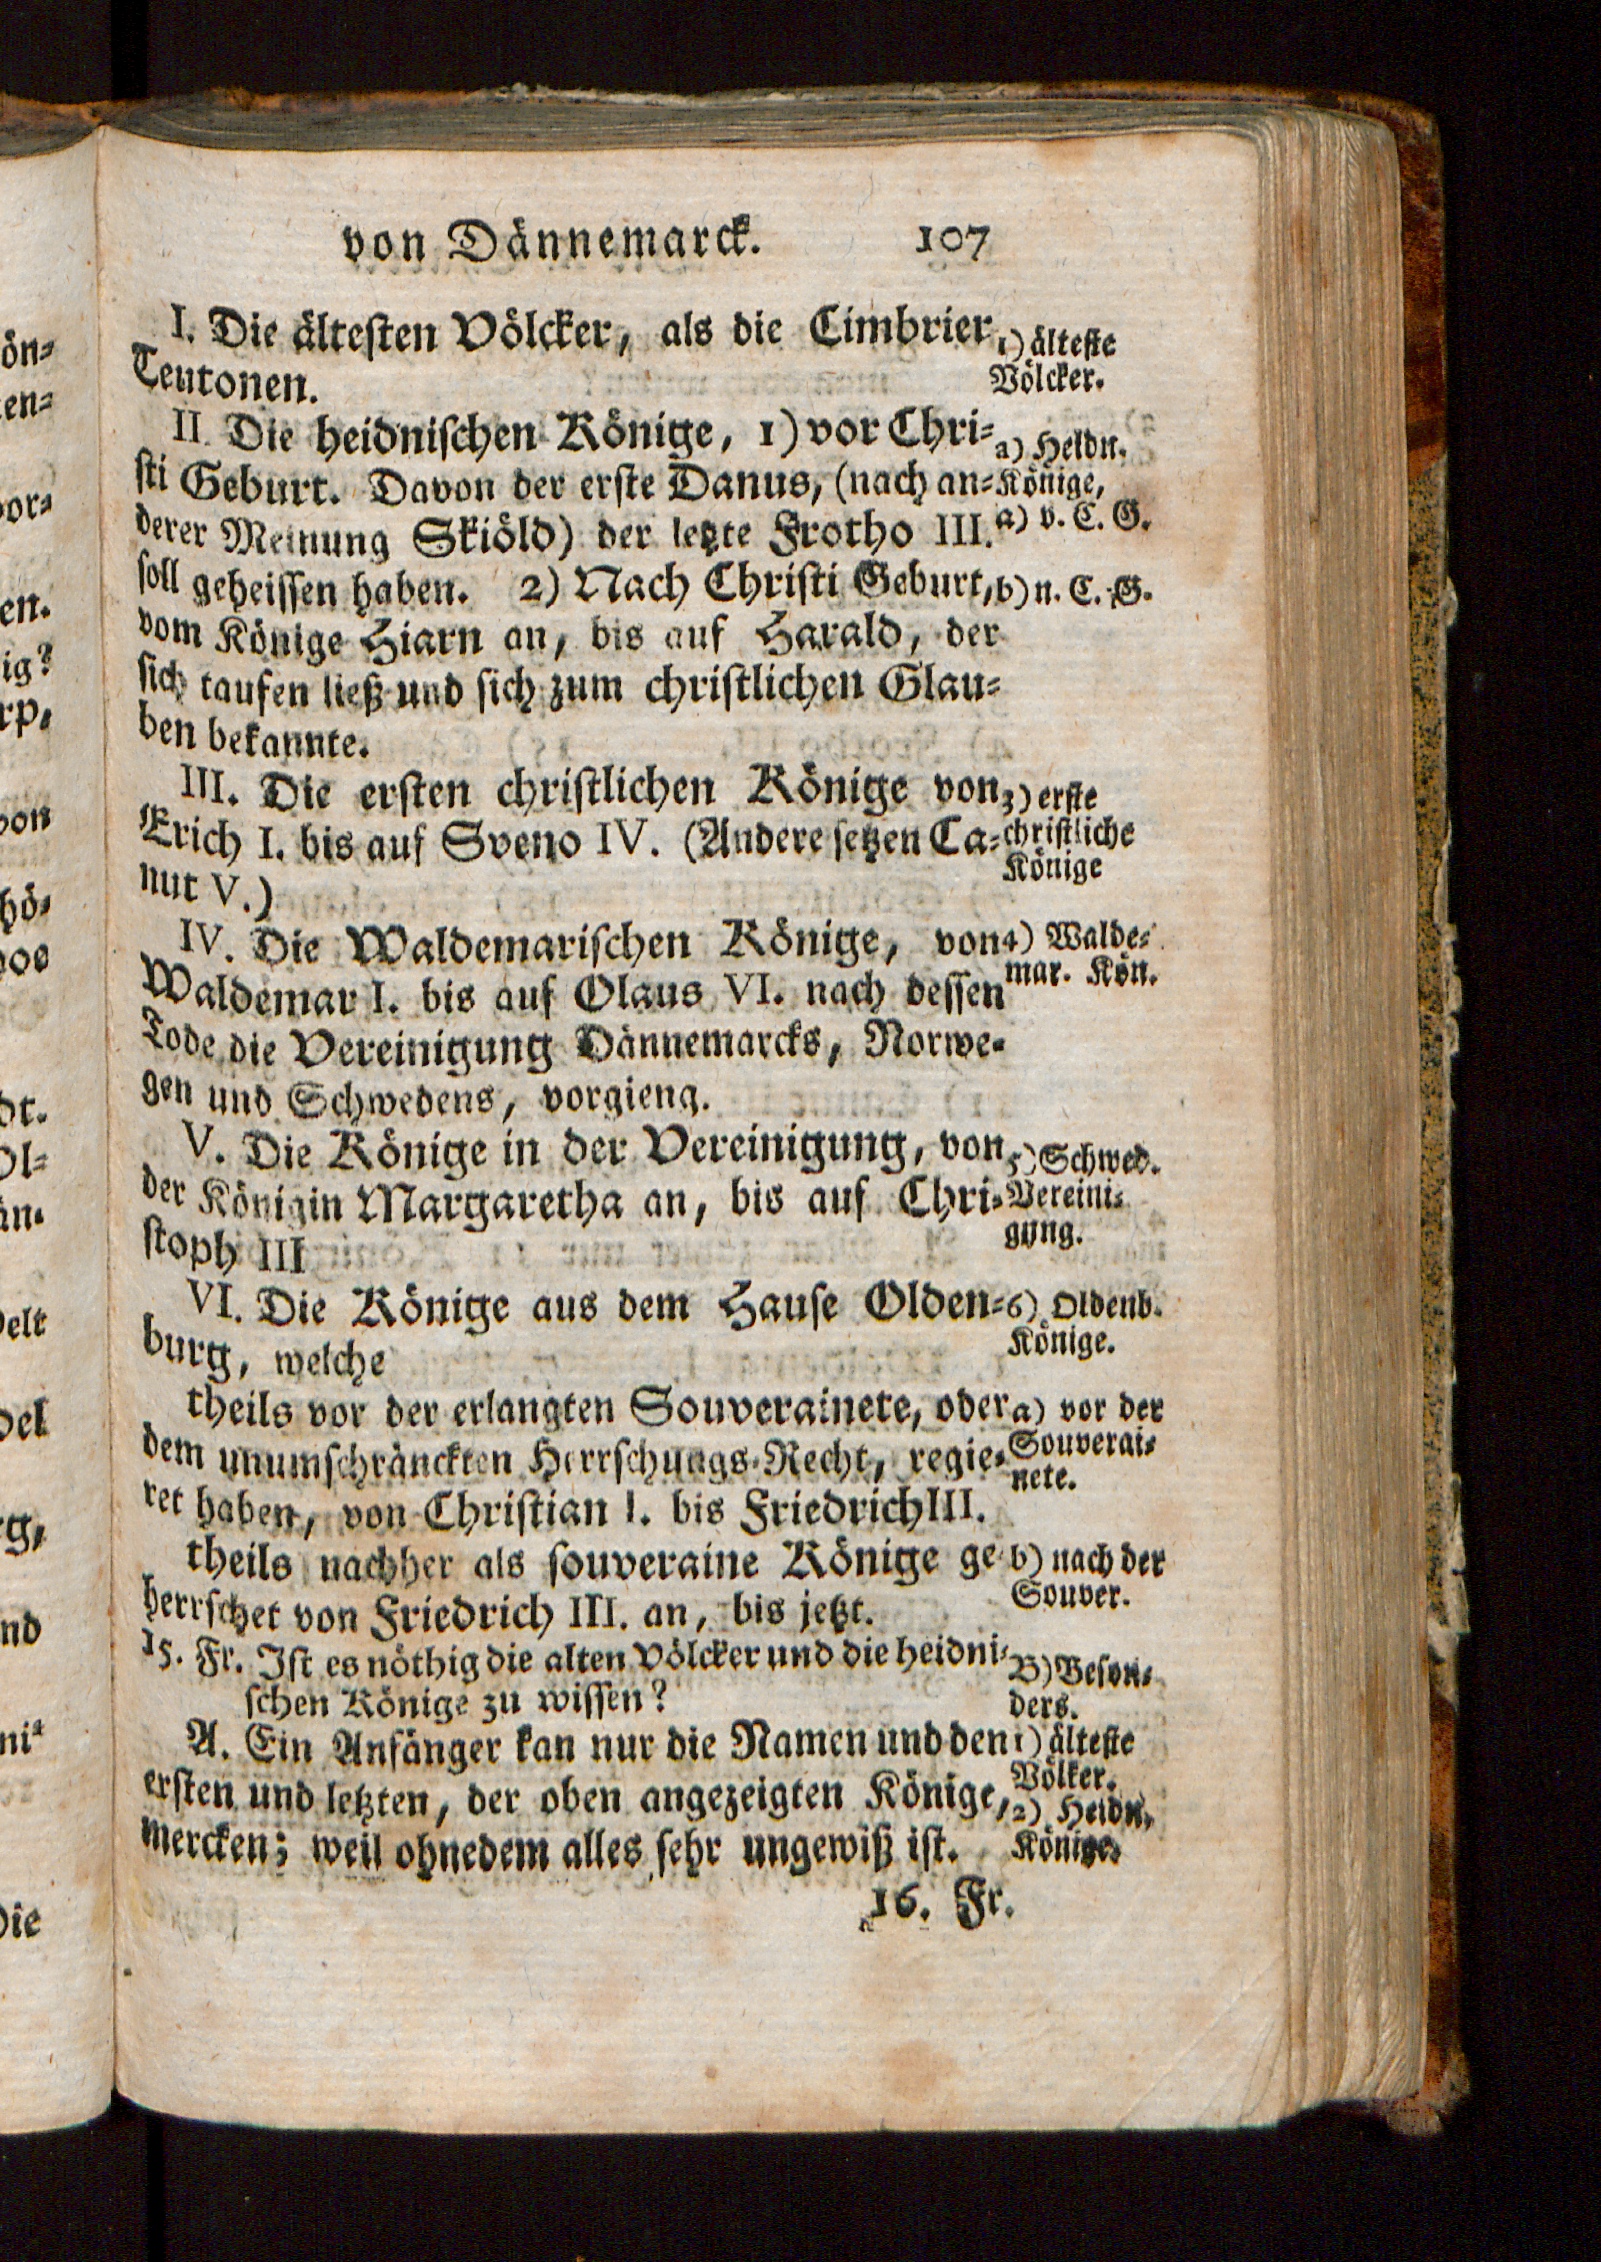 von Dännemarck. 107
I. Die ältesten Völcker, als die Cimbrier
Teutonen.
1) älteste
Völcker.
II. Die heidnischen Könige, 1) vor Chri-
sti Geburt. Davon der erste Danus, (nach an-
derer Meinung Skiöld) der letzte Frotho III.
soll geheissen haben. 2) Nach Christi Geburt,
vom Könige Hiarn an, bis auf Harald, der
sich taufen ließ und sich zum christlichen Glau-
ben bekannte.
2) Heidn.
Könige,
a) v. C. G.
b) n. C. G.
III. Die ersten christlichen Könige von
Erich I. bis auf Sveno IV. (Andere setzen Ca-
nut V.)
3) erste
christliche
Könige
IV. Die Waldemarischen Könige, von
Waldemar I. bis auf Olaus VI. nach dessen
Tode die Vereinigung Dännemarcks, Norwe-
gen und Schwedens, vorgieng.
4) Walde-
mar. Kön.
V. Die Könige in der Vereinigung, von
der Königin Margaretha an, bis auf Chri-
stoph III
5) Schwed.
Vereini-
gung.
VI. Die Könige aus dem Hause Olden-
burg, welche
6) Oldenb.
Könige.
theils vor der erlangten Souverainete, oder
dem unumschränckten Herrschungs-Recht, regie-
ret haben, von Christian I. bis Friedrich III.
a) vor der
Souverai-
nete.
theils nachher als souveraine Könige ge-
herrschet von Friedrich III. an, bis jetzt.
b) nach der
Souver.
15. Fr. Ist es nöthig die alten Völcker und die heidni-
schen Könige zu wissen?
B) Beson-
ders.
A. Ein Anfänger kan nur die Namen und den
ersten und letzten, der oben angezeigten Könige,
mercken; weil ohnedem alles sehr ungewiß ist.
1) älteste
Völker.
2) Heidn.
Könige.
16. Fr.